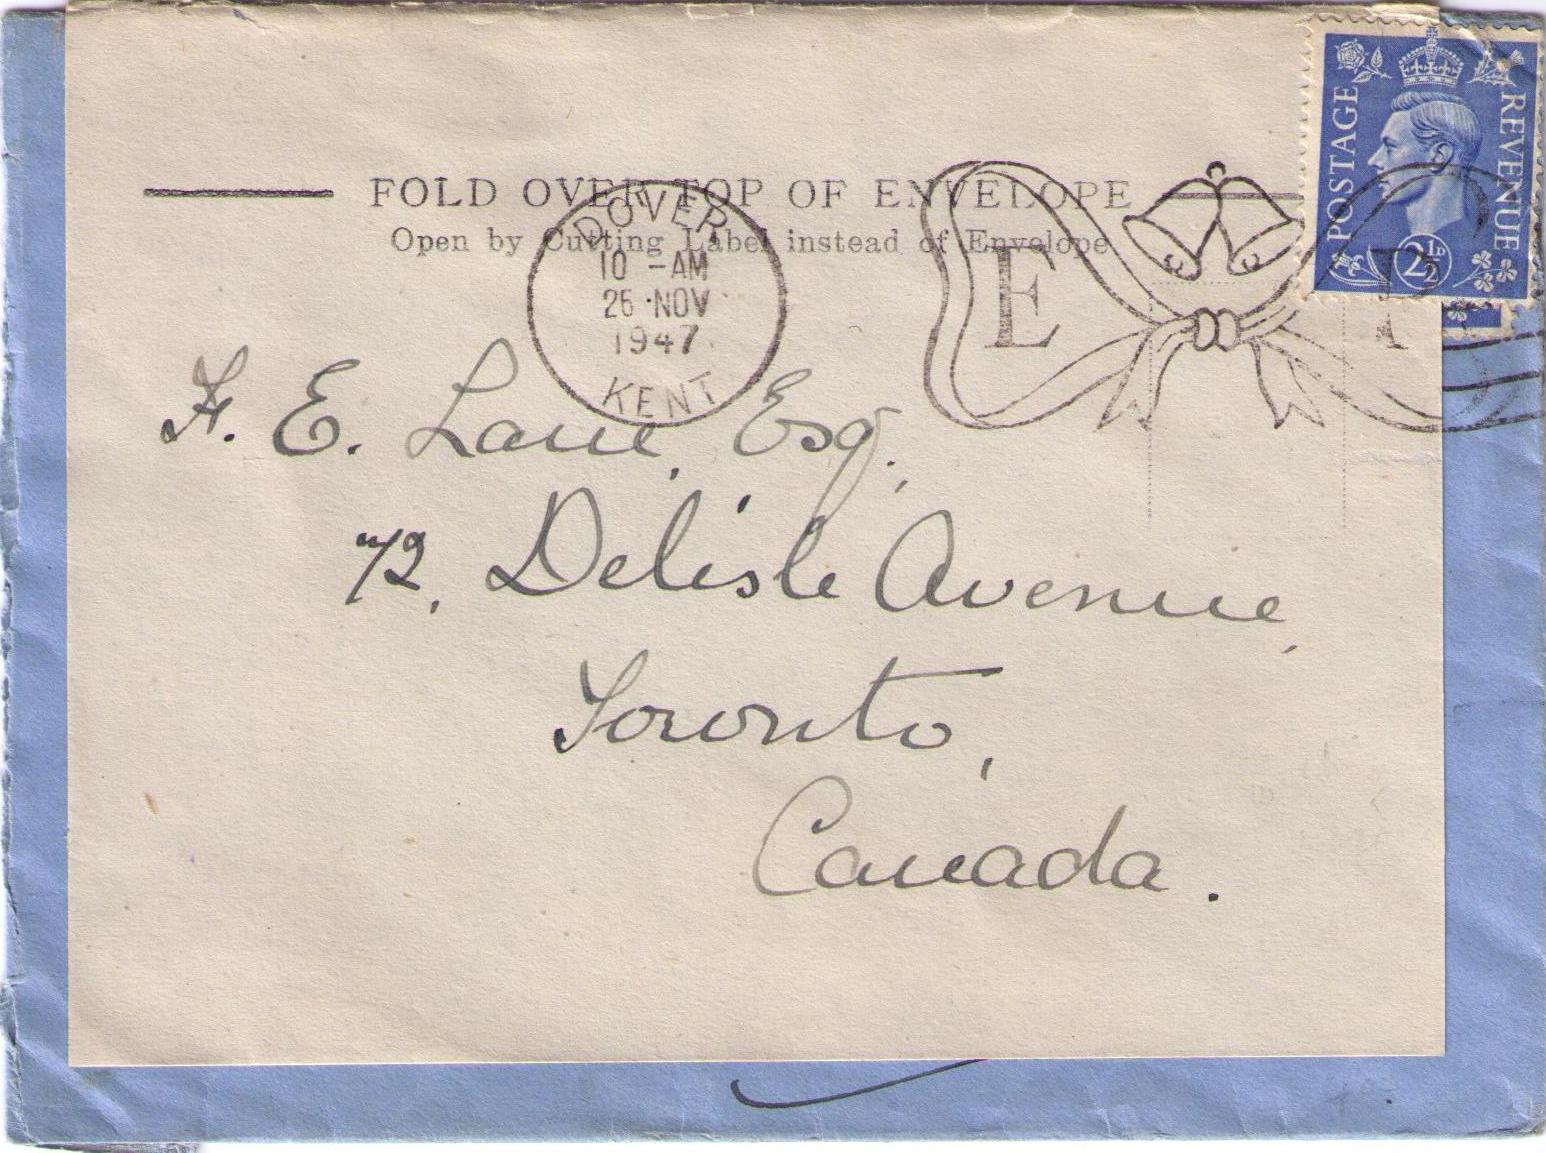 POSTAGE
REVENUE
2½D
FOLD OVER TOP OF ENVELOPE
Open by Cutting Label instead of Envelope
DOVER
10 - AM
26 NOV
1947
KENT
E P
F. E. Lane, Esq.,
72, Delisle Avenue,
Toronto,
Canada.